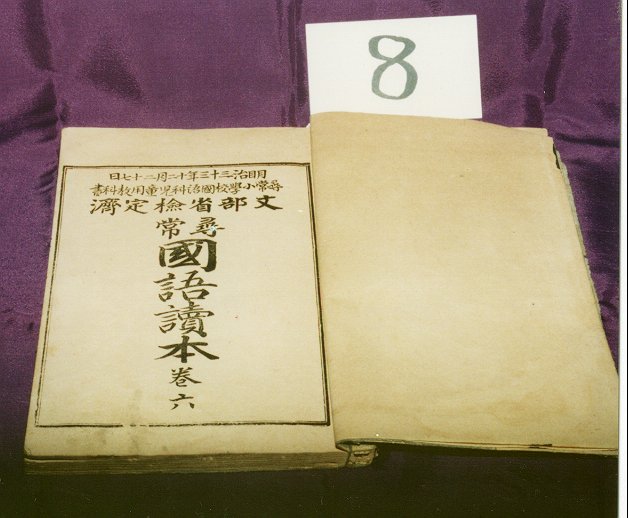 8
明治三十三年十二月二十七日
尋常小學校國語科兒童用教科書
文部省檢定濟
尋常
國語讀本
卷六